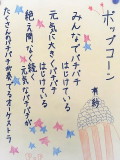 ポップコーン
有紗
みんなでパチパチ
はじけている
元気に大きくパチパチ
はじけている
絶え間なく続く
元気なパチパチが
たくさんのパチパチが奏でるオーケストラ